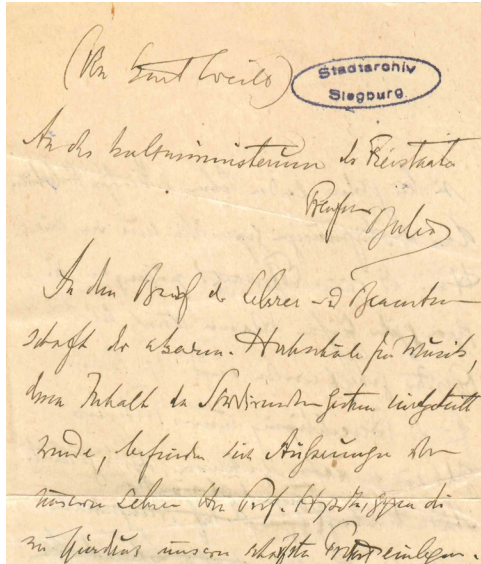 (Von Kurt Weill)
Stadtarchiv
Siegburg
An das Kultusministerium des Freistaats
Preußen
Berlin
In dem Brief der Lehrer- und Beamten-
schaft der akadem. Hochschule für Musik,
dessen Inhalt den Studierenden gestern mitgeteilt
wurde, befinden sich Äußerungen über
unsern Lehrer Prof. gegen die
wir hierdurch unsern schärfsten Protest einlegen.